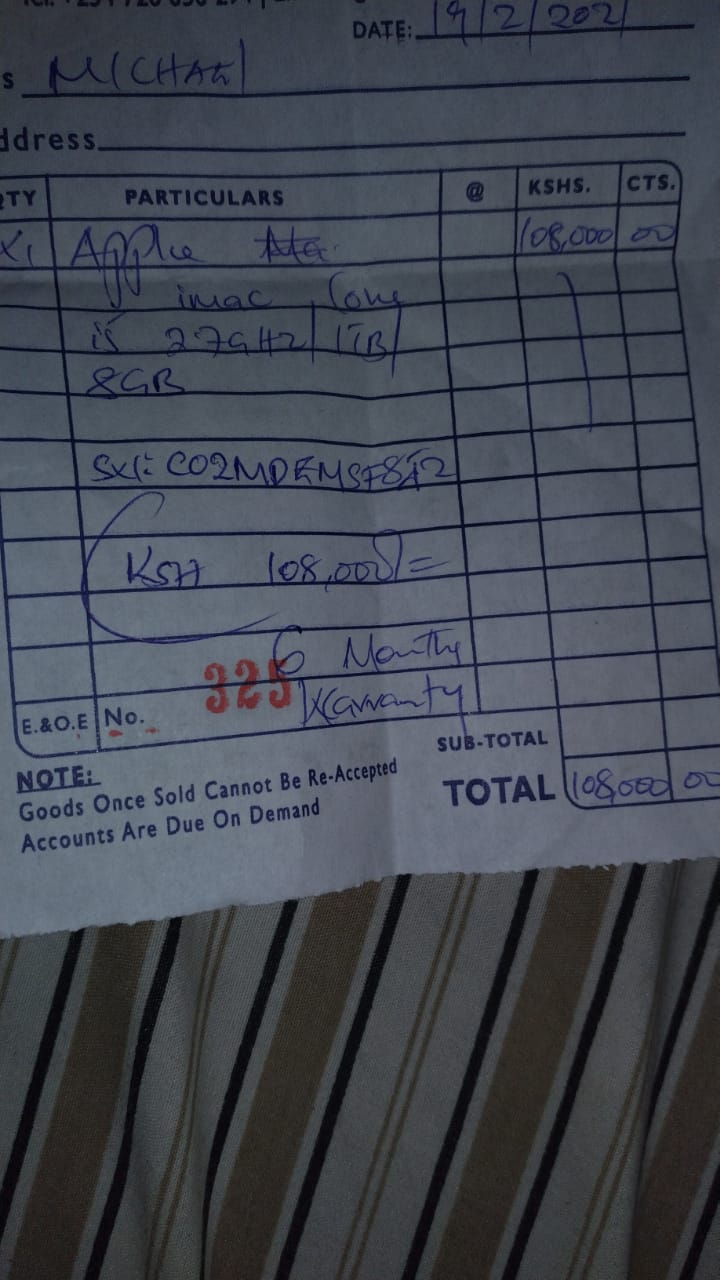 DATE: 19/2/2021
s MICHAEL
ddress
QTY PARTICULARS @ KSHS. CTS.
X1 Apple 108,000 00
imac Core
i5 2.7GHZ/ 1TB/
8GB
SN: C02MDEMSF8J2
KSH 108,000/=
6 Months
Warranty
E.&O.E No. 325
SUB-TOTAL
TOTAL 108,000 00
NOTE:
Goods Once Sold Cannot Be Re-Accepted
Accounts Are Due On Demand